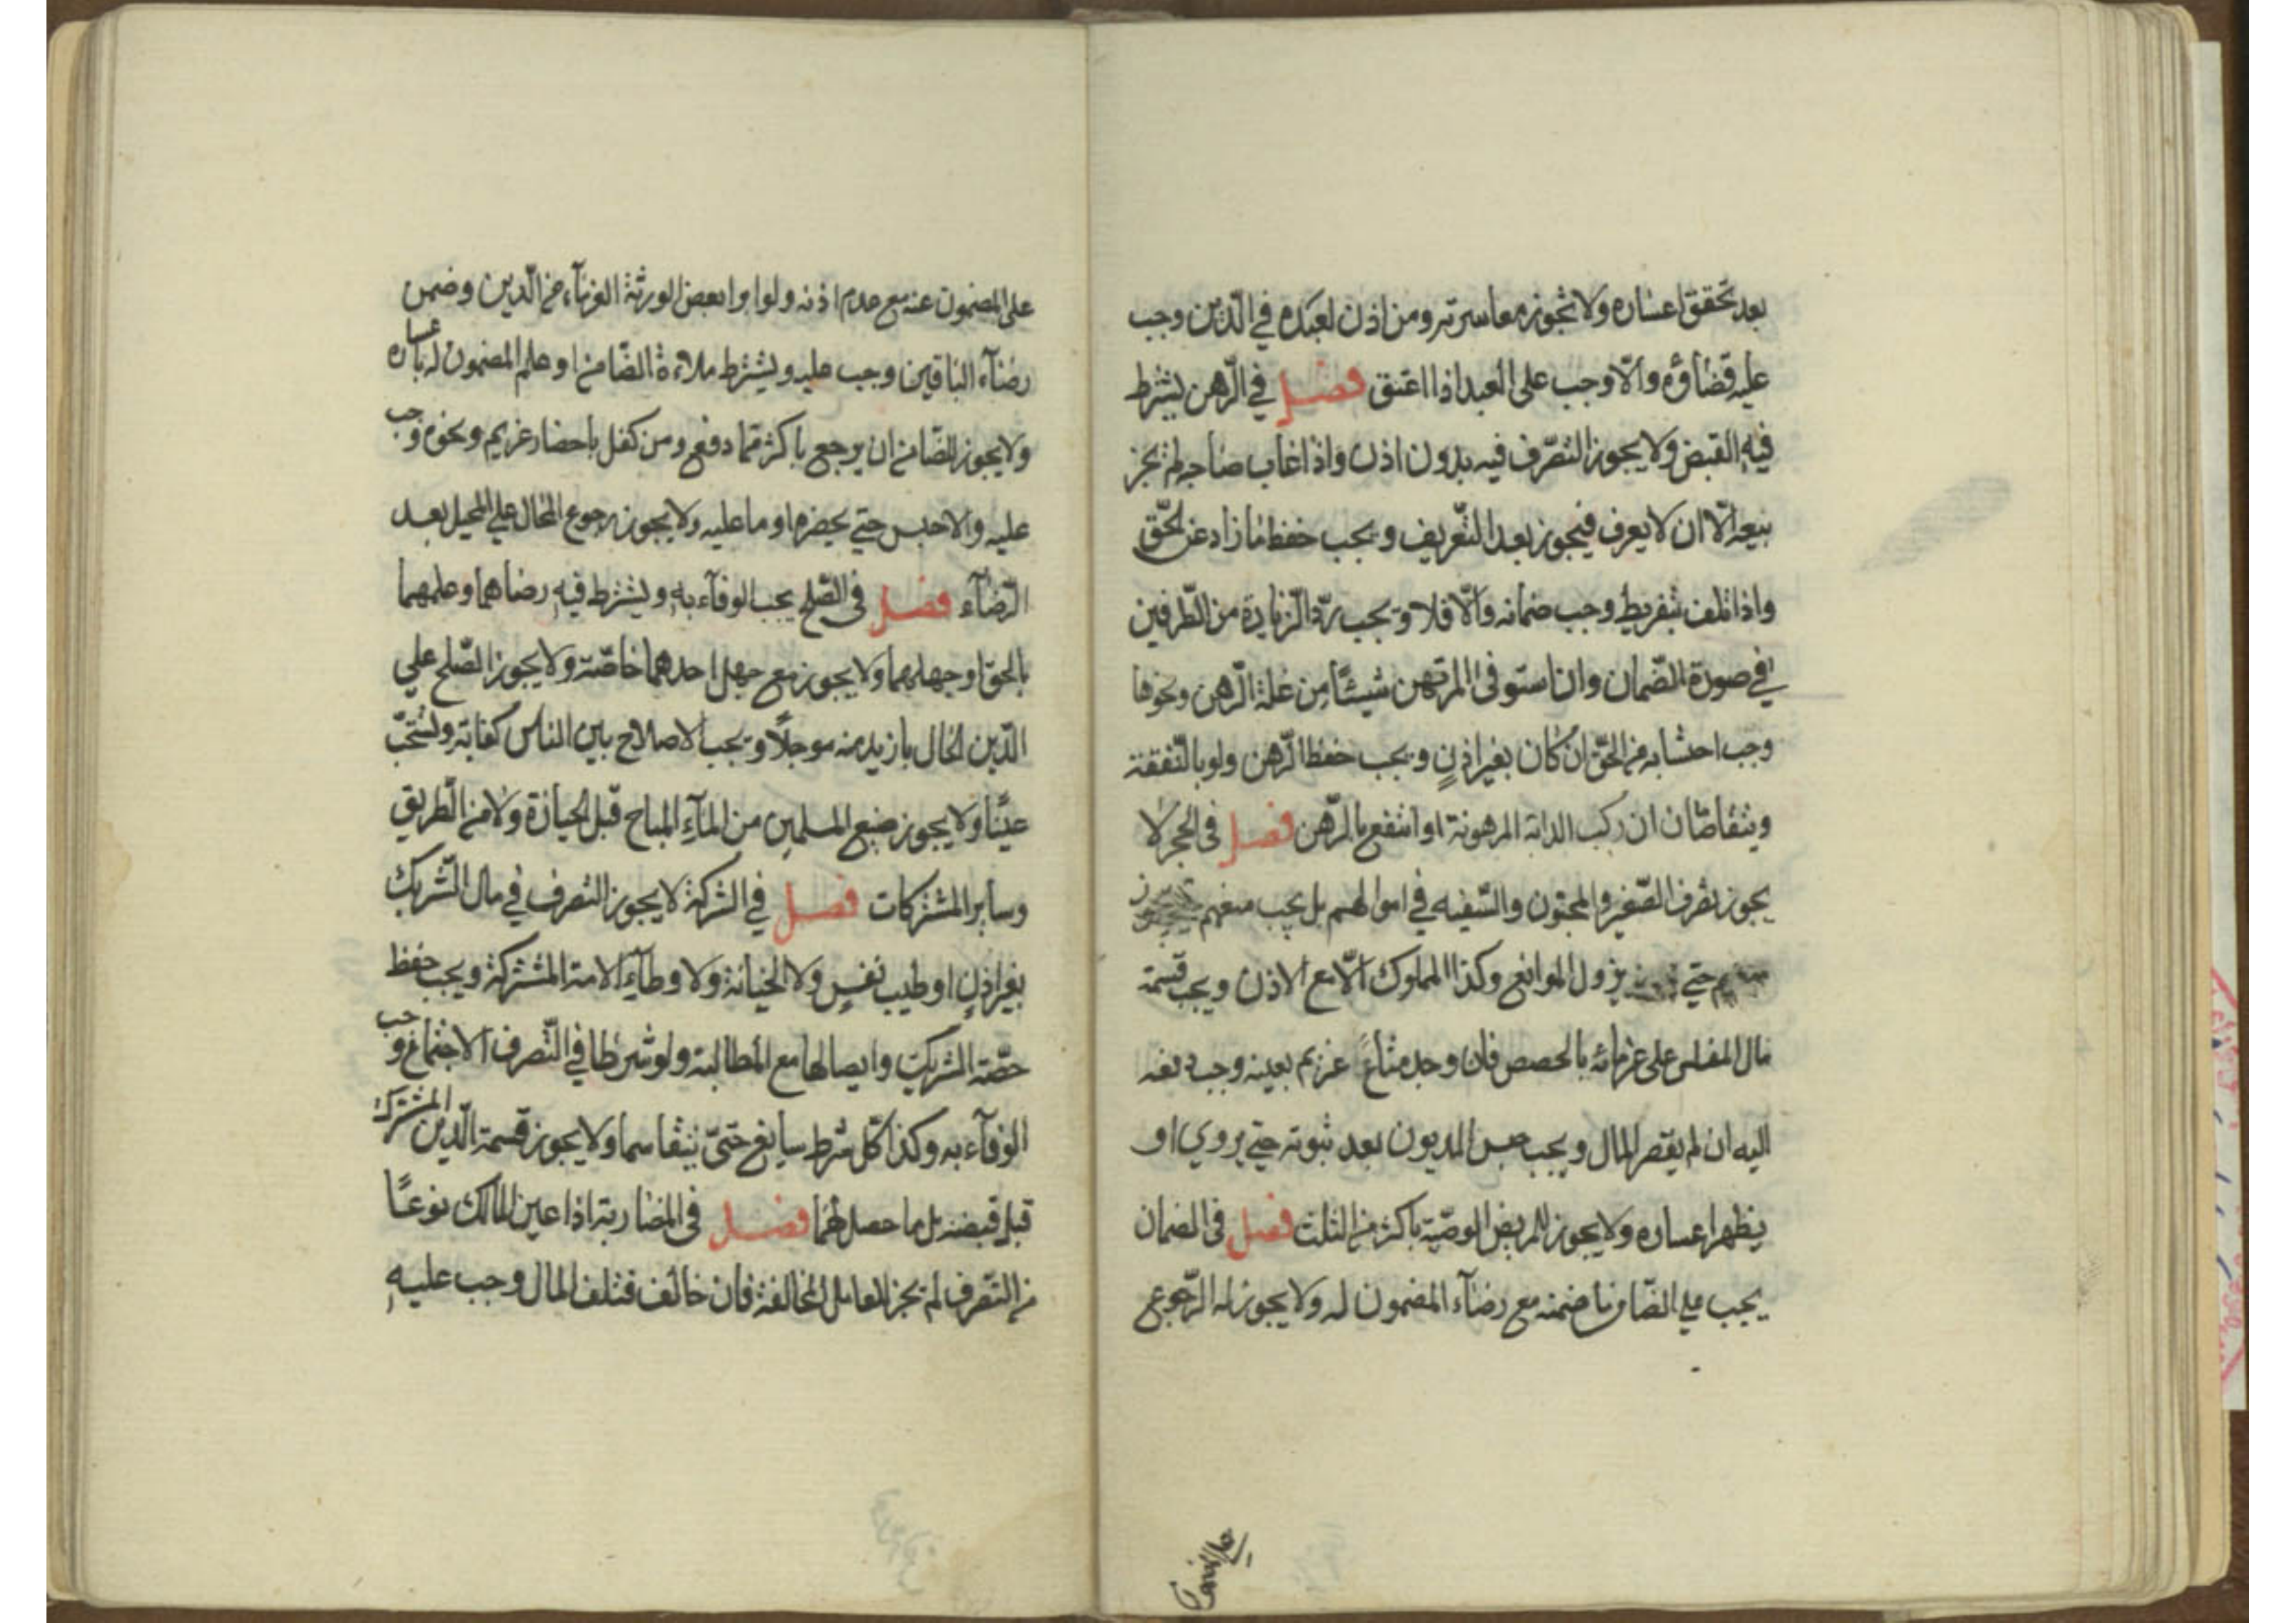 بعد تحقق اعساره ولا تجوز معاسرته ومن اذن لعبده في الدّين وجب
عليه قضاؤه والّا وجب على العبد اذا اعتق فصل في الرّهن يشترط
فيه القبض ولا يجوز التصرّف فيه بدون اذن واذا غاب صاحبه لم يجز
بيعه الّا ان لا يعرف فيجوز بعد التّعريف ويجب حفظ ما زاد عن الحّق
واذا تلف بتفريط وجب ضمانه والّا فلا ويجب ردّ الزيادة من الطّرفين
في صورة الضّمان وان استوفى المرتهن شيئًا من غلة الرّهن ونحوها
وجب احتسابه من الحق ان كان بغير اذنٍ ويجب حفظ الرّهن ولو بالنّفقة
ويتقاصّان ان ركب الدابة المرهونة او انتفع بالرّهن فصل في الحجر لا
يجوز تصرف الصّغير والمجنون والسّفيه في اموالهم بل يجب منعهم
حتي يزول الموانع وكذا المملوك الّا مع الاذن ويجب قسمة
مال المفلس على غرمائه بالحصص فان وجد متاع غريم بعينه وجب دفعه
اليه ان لم يقصر المال ويجب حبس المديون بعد ثبوته حتي يروي او
يظهر اعساره ولا يجوز للمريض الوصيّة باكثر من الثلث فصل في الضمان
يجب علي الضّامن ما ضمنه مع رضآء المضمون له ولا يجوز له الرّجوع
على المضمون عنه مع عدم اذنه ولو ابوا بعض الورثة الغرمآء من الدّين وضمن
رضآء الباقين وجب عليه ويشترط ملاءة الضّامن او علم المضمون له باعساره
ولا يجوز للضّامن ان يرجع باكثر ممّا دفع ومن كفل باحضار غريم ونحوه وجب
عليه والا حبس حتي يحضره او ما عليه ولا يجوز رجوع المحال علي المحيل بعد
الرّضآء فصل في الصّلح يجب الوفآء به ويشترط فيه رضاهما وعلمهما
بالحق او جهلهما ولا يجوز مع جهل احدهما خاصّة ولا يجوز الصّلح علي
الدّين الحال بازيد منه موجلًا ويجب الاصلاح بين الناس كفاية ويستحبّ
عينًا ولا يجوز منع المسلمين من المآء المباح قبل الحيازة ولا من الطّريق
وساير المشتركات فصل في الشركة لا يجوز التصرف في مال الشّريك
بغير اذنٍ او طيب نفسٍ ولا الخيانة ولا وطآء الامة المشتركة ويجب حفظ
حصّة الشريك وايصالها مع المطالبة ولو شرطا في التّصرف الاجتماع وجب
الوفآء به وكذا كلّ شرط سايغ حتّى يتقاسما ولا يجوز قسمة الدّين المشترك
قبل قبضه بل ما حصل لهما فصل في المضاربة اذا عين المالك نوعًا
من التصّرف لم يجز للعامل المخالفة فان خالف فتلف المال وجب عليه